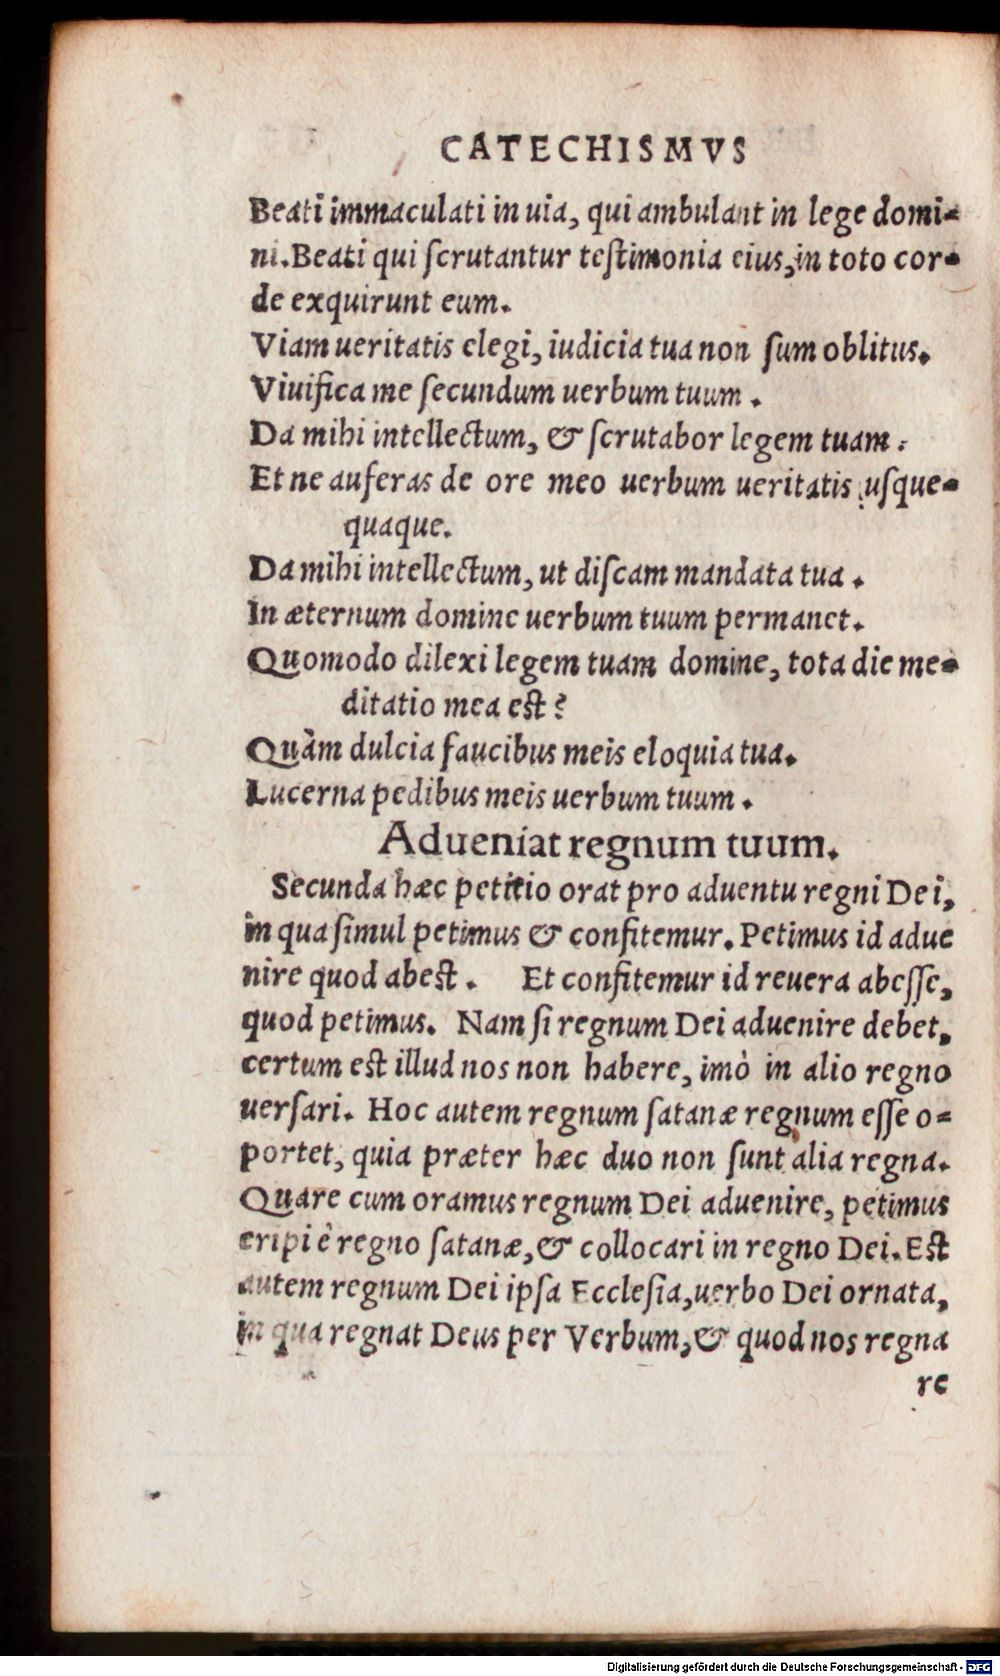 CATECHISMVS
Beati immaculati in uia, qui ambulant in lege domi-
ni. Beati qui ſcrutantur teſtimonia eius, in toto cor-
de exquirunt eum.
Viam ueritatis elegi, iudicia tua non ſum oblitus.
Viuifica me ſecundum uerbum tuum.
Da mihi intellectum, & ſcrutabor legem tuam.
Et ne auferas de ore meo uerbum ueritatis uſque-
quaque.
Da mihi intellectum, ut diſcam mandata tua.
In æternum domine uerbum tuum permanet.
Quomodo dilexi legem tuam domine, tota die me-
ditatio mea eſt?
Quàm dulcia faucibus meis eloquia tua.
Lucerna pedibus meis uerbum tuum.
Adueniat regnum tuum.
Secunda hæc petitio orat pro aduentu regni Dei,
in qua ſimul petimus & confitemur. Petimus id adue
nire quod abeſt. Et confitemur id reuera abeſſe,
quod petimus. Nam ſi regnum Dei aduenire debet,
certum eſt illud nos non habere, imò in alio regno
uerſari. Hoc autem regnum ſatanæ regnum eſſe o-
portet, quia præter hæc duo non ſunt alia regna.
Quare cum oramus regnum Dei aduenire, petimus
eripi è regno ſatanæ, & collocari in regno Dei. Eſt
autem regnum Dei ipſa Eccleſia, uerbo Dei ornata,
in qua regnat Deus per Verbum, & quod nos regna
re
Digitalisierung gefördert durch die Deutsche Forschungsgemeinschaft - DFG